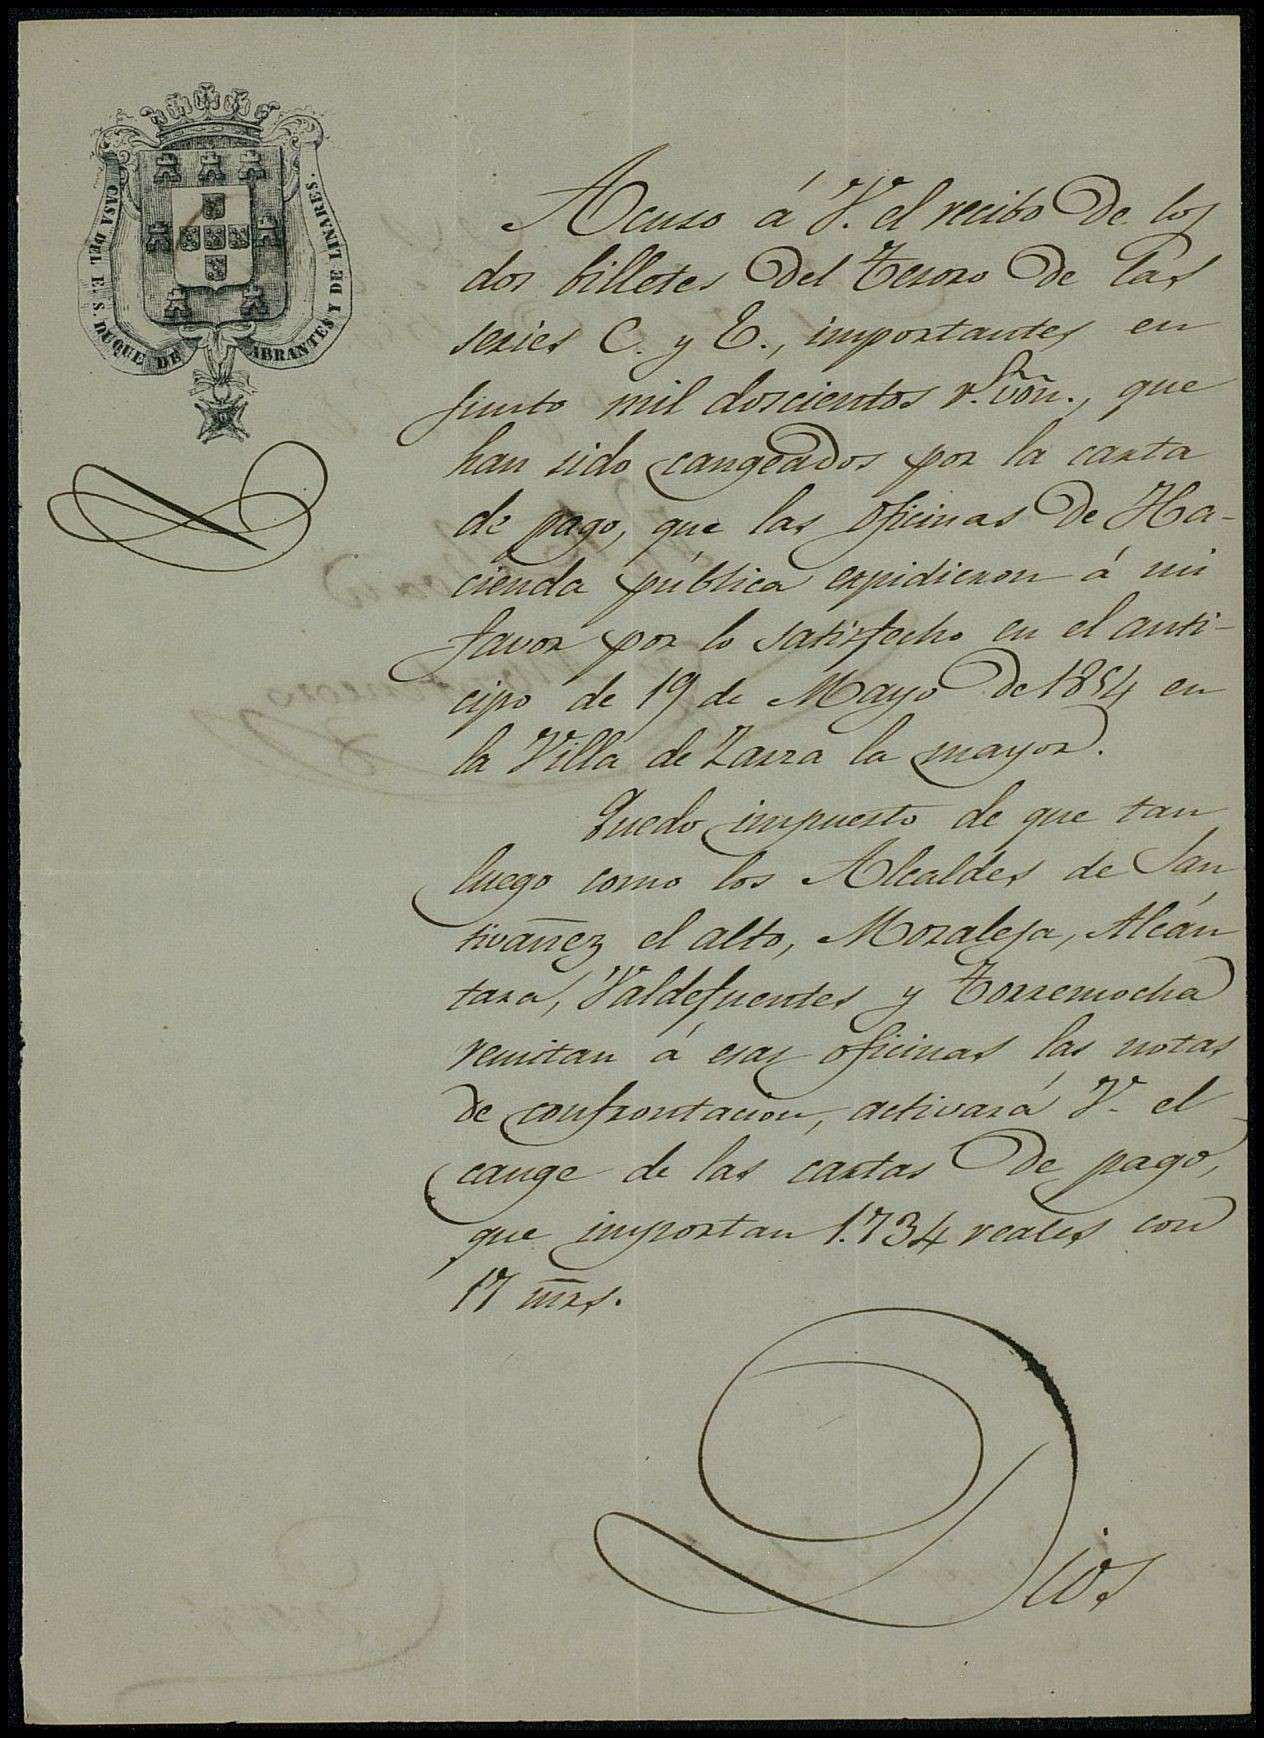 CASA DEL E. S. DUQUE DE ABRANTES Y DE LINARES.
Acuso á V. el recibo de los
dos billetes del Tesoro de las
series C. y E., importantes en
junto mil doscientos r.^s vón., que
han sido cangeados por la carta
de pago, que las oficinas de Ha-
cienda pública expidieron á mi
favor por lo satisfecho en el anti-
cipo de 19 de Mayo de 1854 en
la Villa de Zarza la mayor.
Quedo impuesto de que tan
luego como los Alcaldes de San
tivañez el alto, Moraleja, Alcán
tara, Valdefuentes y Torremocha
remitan á esas oficinas las notas
de confrontacion, activará V. el
cange de las cartas de pago,
que importan 1.734 reales con
17 mrs.
Dios